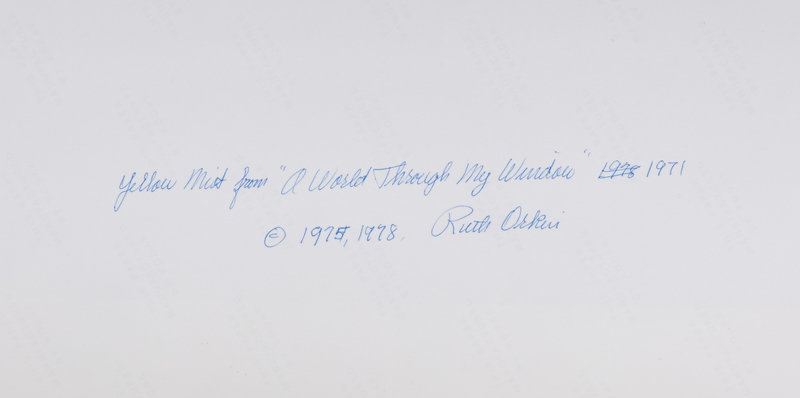 Yellow Mist from "A World Through My Window" 1978 1971
© 1975, 1978. Ruth Orkin